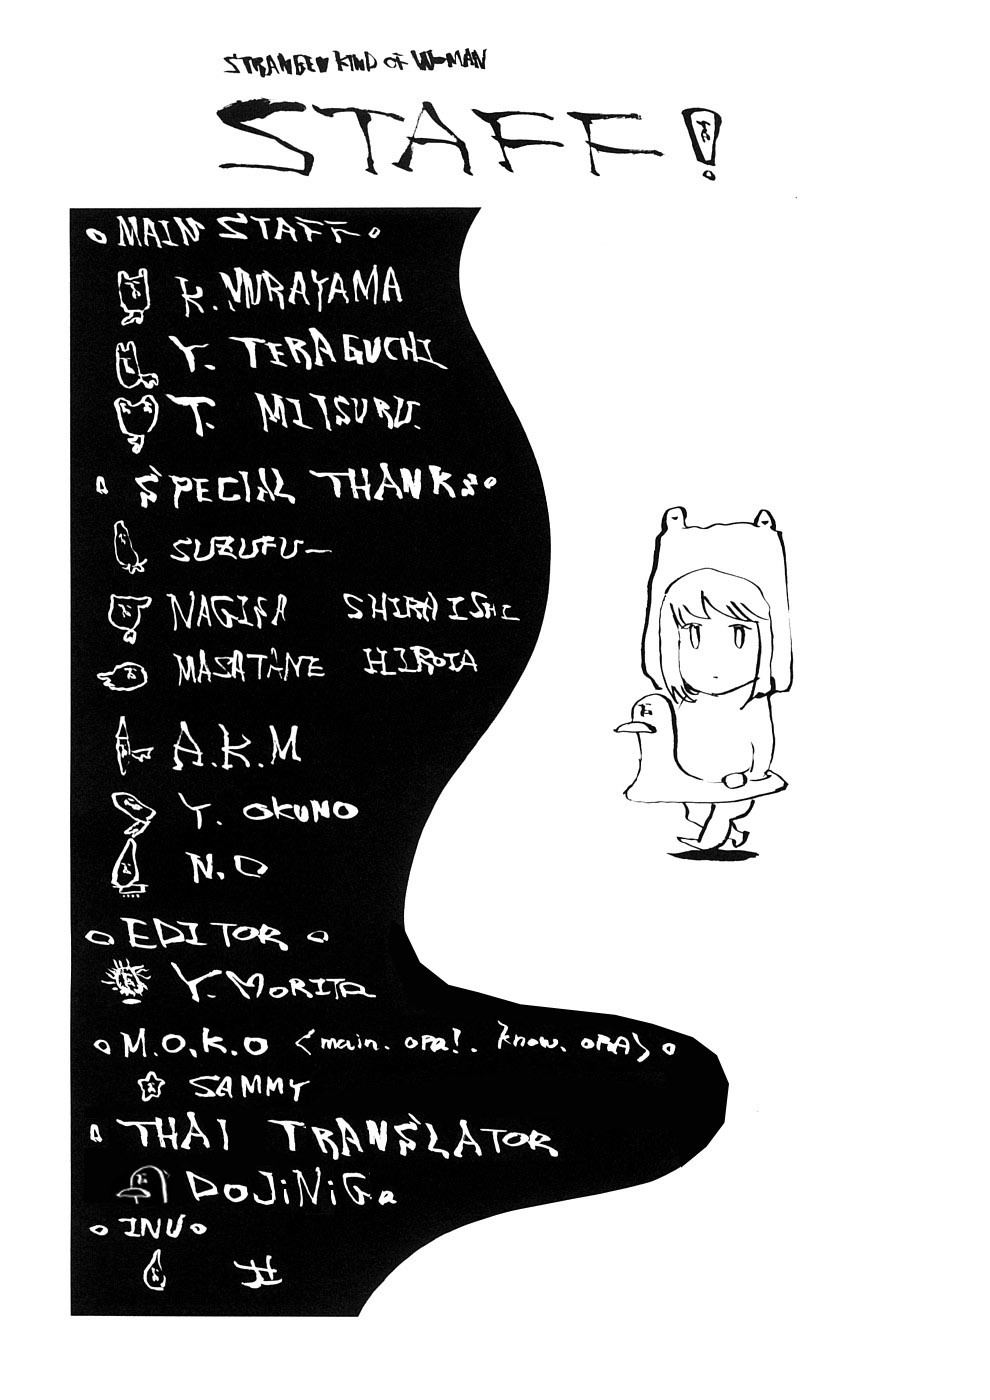 STRANGE KIND OF WOMAN
STAFF!
MAIN STAFF
K. MURAYAMA
Y. TERAGUCHI
T. MITSURU.
SPECIAL THANKS
SUZUFU—
NAGISA SHIRAISHI
MASATANE HIROTA
A.K.M
Y. OKUNO
N.O
EDITOR
Y. MORITA
M.O.K.O <main. OPA!. know. OPA>
SAMMY
THAI TRANSLATOR
DOJiNiGa
INU